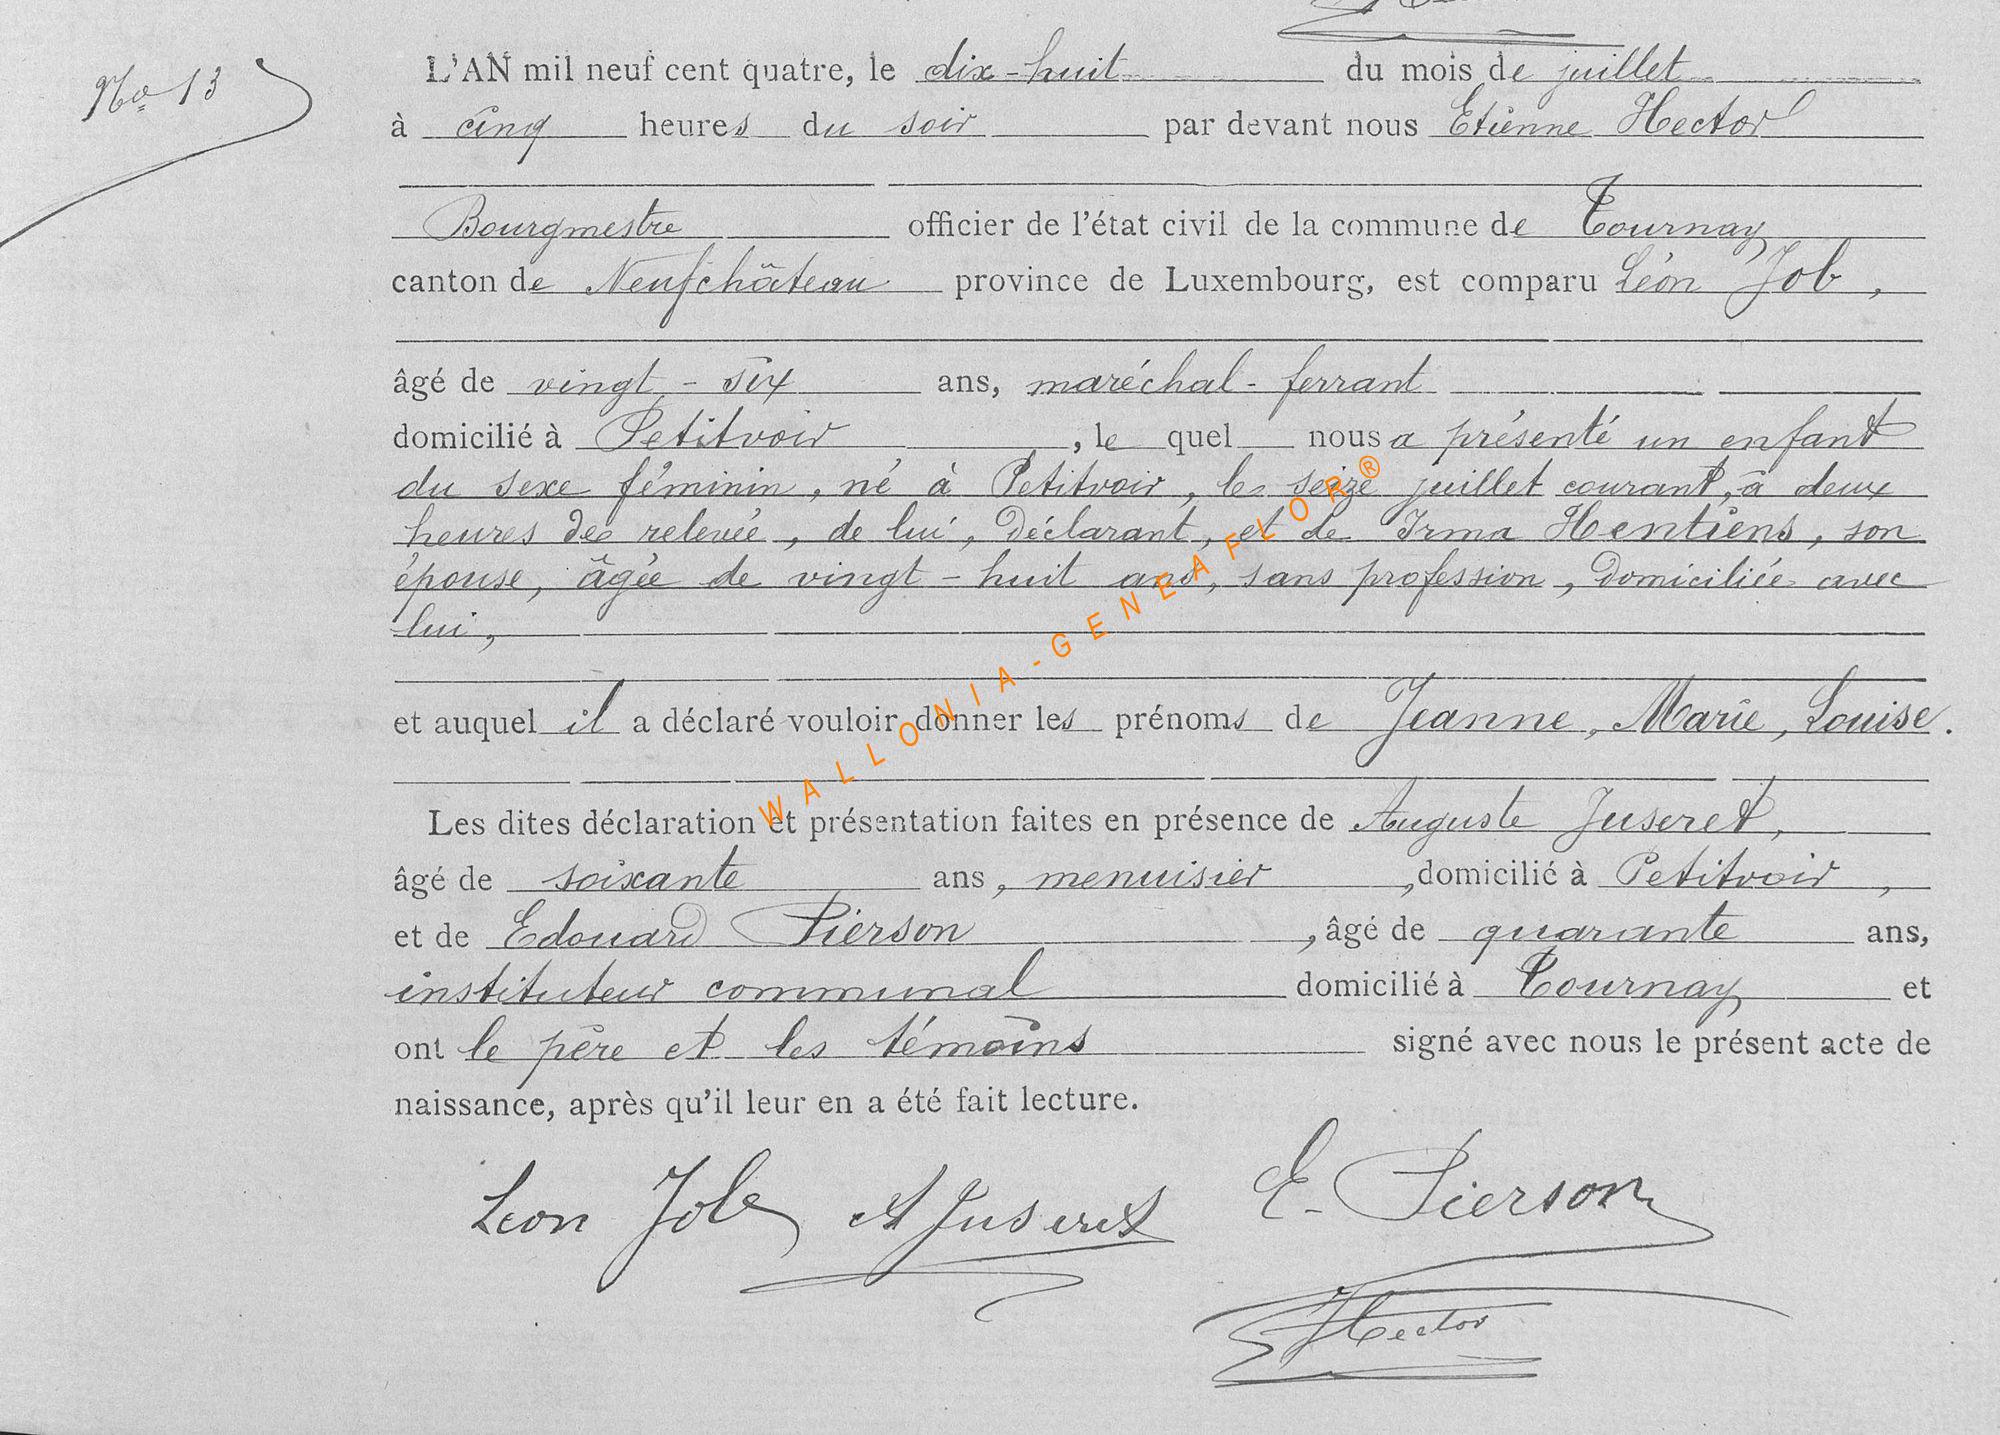 No 13
L'AN mil neuf cent quatre, le dix-huit du mois de juillet
à cinq heures du soir par devant nous Etienne Hector
Bourgmestre officier de l'état civil de la commune de Tournay
canton de Neufchâteau province de Luxembourg, est comparu Léon Job,
âgé de vingt-six ans, maréchal-ferrant
domicilié à Petitvoir, le quel nous a présenté un enfant
du sexe féminin, né à Petitvoir, le seize juillet courant, à deux
heures de relevée, de lui, déclarant, et de Irma Hentiens, son
épouse, âgée de vingt-huit ans, sans profession, domiciliée avec
lui,
et auquel il a déclaré vouloir donner les prénoms de Jeanne, Marie, Louise.
Les dites déclaration et présentation faites en présence de Auguste Juseret,
âgé de soixante ans, menuisier, domicilié à Petitvoir,
et de Edouard Pierson, âgé de quarante ans,
instituteur communal domicilié à Tournay et
ont le père et les témoins signé avec nous le présent acte de
naissance, après qu'il leur en a été fait lecture.
Léon Job A Juseret E. Pierson
Hector
WALLONIA-GENEAFLOR®